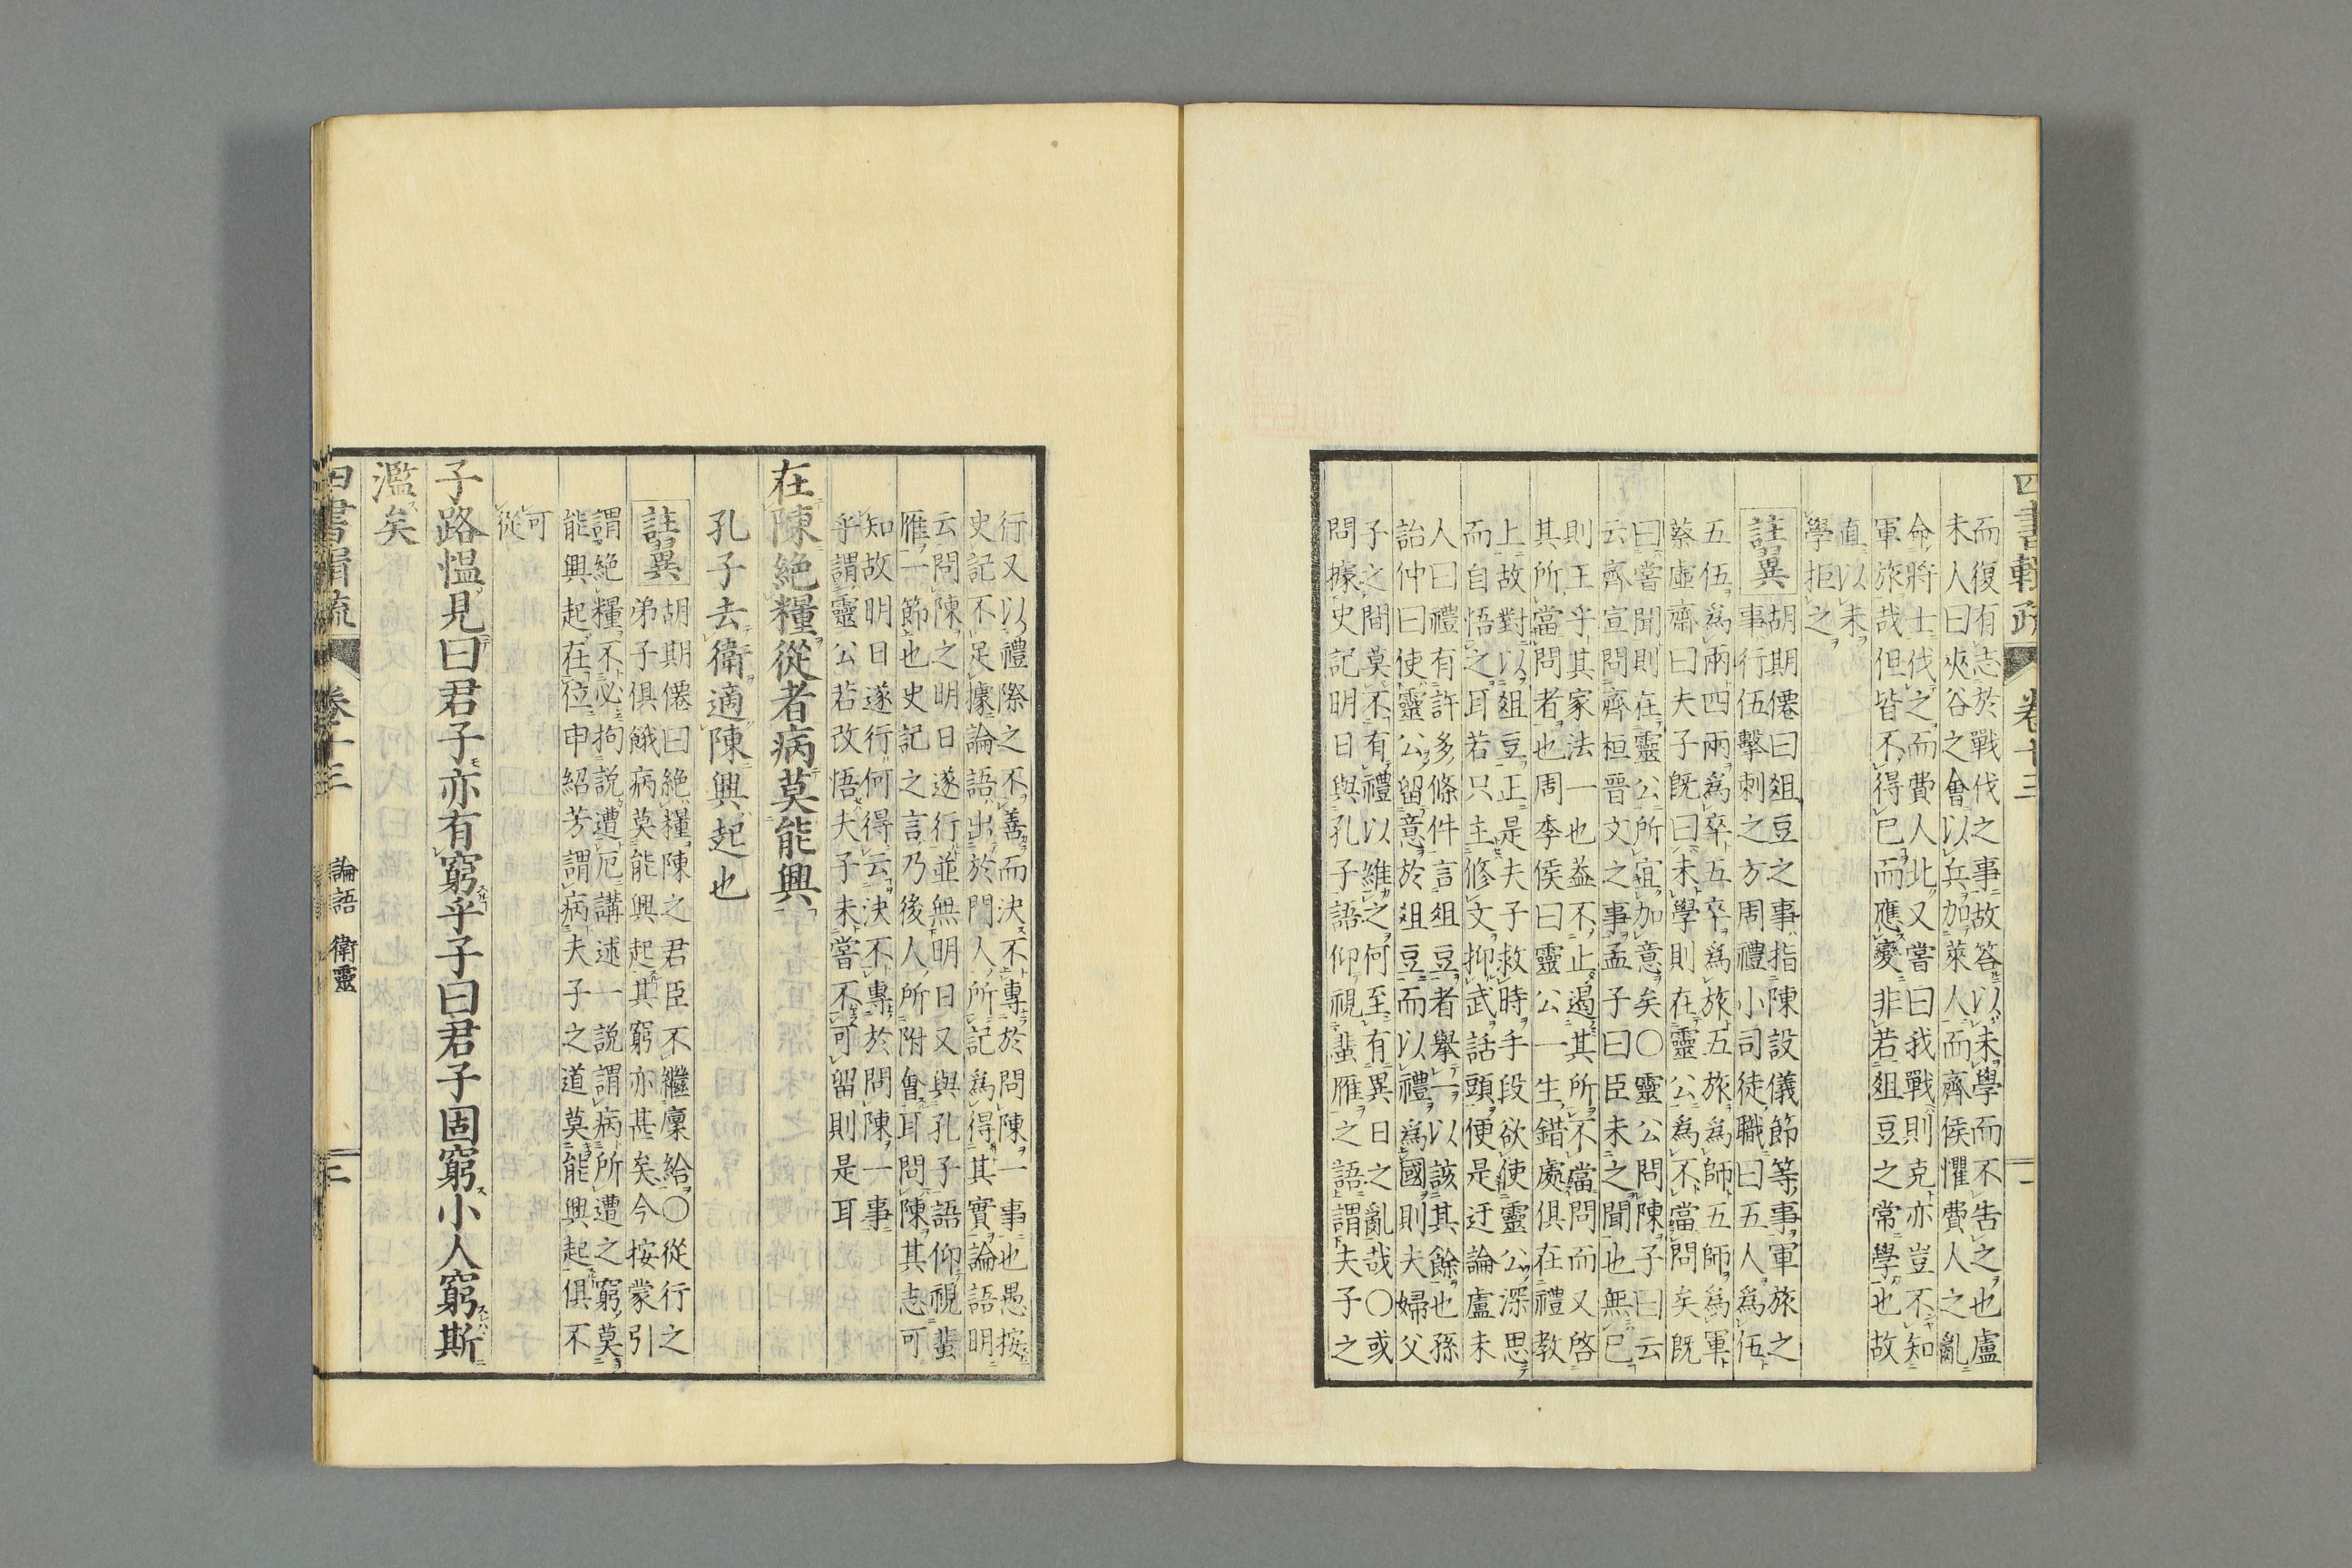 四書輯疏 卷十三 一
而復有志於戰伐之事故答以未學而不告之也盧
未人曰夾谷之會以兵加萊人而齊侯懼費人之亂
命將士伐之而費人北又嘗曰我戰則克亦豈不知
軍旅哉但皆不得已而應變非若俎豆之常學也故
直以未
學拒之
註異
胡期僊曰俎豆之事指陳設儀節等事軍旅之
事行伍擊刺之方周禮小司徒職曰五人爲伍
五伍爲兩四兩爲卒五卒爲旅五旅爲師五師爲軍
蔡虛齋曰夫子旣曰未學則在靈公爲不當問矣旣
曰嘗聞則在靈公所宜加意矣○靈公問陳子曰云
云齊宣問齊桓晉文之事孟子曰臣未之聞也無已
則王乎其家法一也益不止遏其所不當問而又啓
其所當問者也周季侯曰靈公一生錯處俱在禮教
上故對以俎豆正是夫子救時手段欲使靈公深思
而自悟之耳若只主修文抑武話頭便是迂論盧未
人曰禮有許多條件言俎豆者擧一以該其餘也孫
詒仲曰使靈公留意於俎豆而以禮爲國則夫婦父
子之間莫不有禮以維之何至有異日之亂哉○或
問據史記明日與孔子語仰視蜚雁之語謂夫子之
行又以禮際之不善而決不專於問陳一事也愚按
史記不足據論語出於門人所記爲得其實論語明
云問陳之明日遂行並無明日又與孔子語仰視蜚
雁一節也史記之言乃後人所附會耳問陳其志可
知故明日遂行何得云決不專於問陳一事
乎謂靈公若改悟夫子未嘗不可留則是耳
在陳絶糧從者病莫能興
孔子去衛適陳興起也
註異
胡期僊曰絶糧陳之君臣不繼廩給○從行之
弟子俱餓病莫能興起其窮亦甚矣今按蒙引
謂絶糧不必拘説遭厄講述一説謂病所遭之窮莫
能興起在位申紹芳謂病夫子之道莫能興起俱不
可
從
子路慍見曰君子亦有窮乎子曰君子固窮小人窮斯
濫矣
四書輯疏 卷十三 論語 衛靈 二